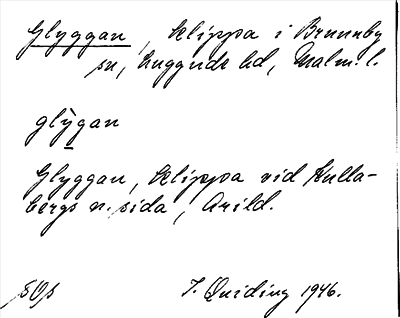 Glyggan, klippa i Brunnby
sn, Luggude hd, Malm. l.
glỳgan
Glyggan, klippa vid Kulla-
bergs n. sida, Arild.
SOs
J. Quiding 1946.